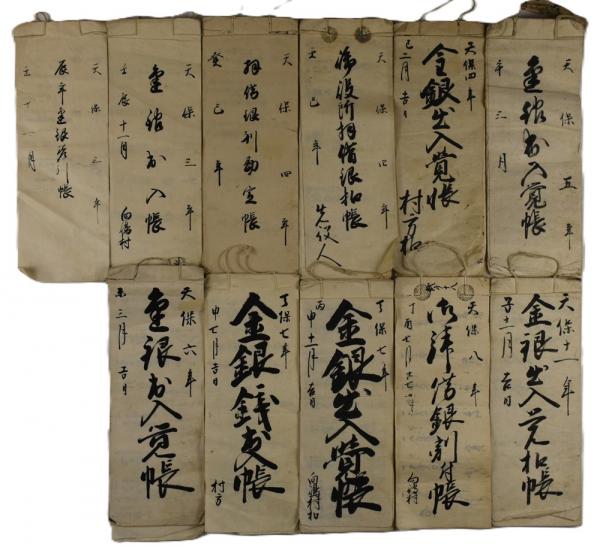 天保五年
金銀出入覚帳
三月
天保四年
金銀出入覚帳
巳二月吉日
村方扣
天保四年
御役所拝借銀扣帳
巳年
天保四年
拝借銀利勘定帳
癸巳年
天保三年
金銀出入帳
壬辰十一月
天保三年
十一月
天保十一年
金銀出入覚扣帳
子十二月吉日
天保八年
御拝借銀割付帳
丁酉七月
天保七年
金銀出入覚帳
丙申十二月吉日
天保七年
金銀銭出入帳
申七月吉日
村方
天保六年
金銀出入覚帳
未三月吉日